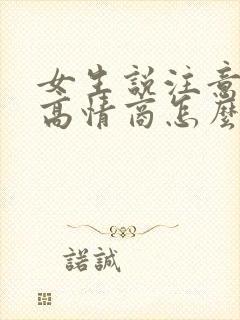 女生說注意
高情商怎麼
諾誠